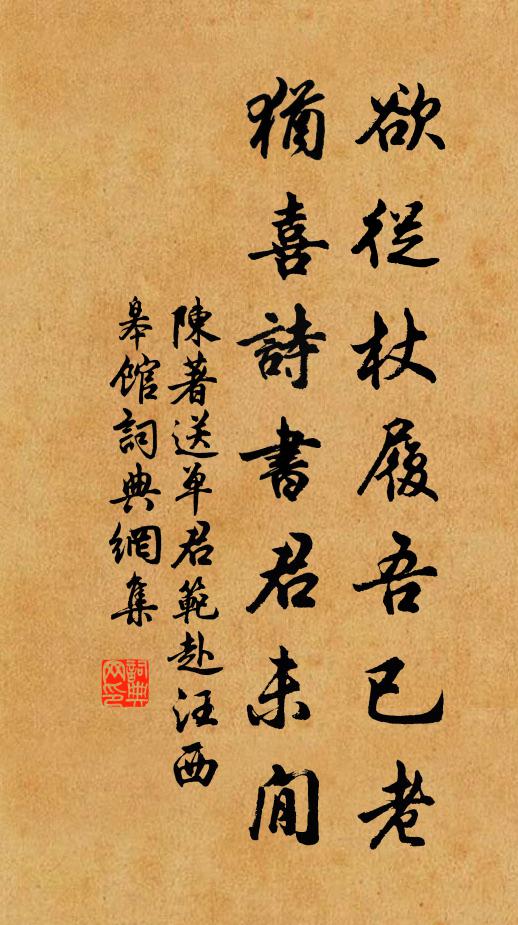 欲從杖履吾已老
猶喜詩書君未閒
陳著送單君範赴汪西
皋館詞典網集
詞典网印